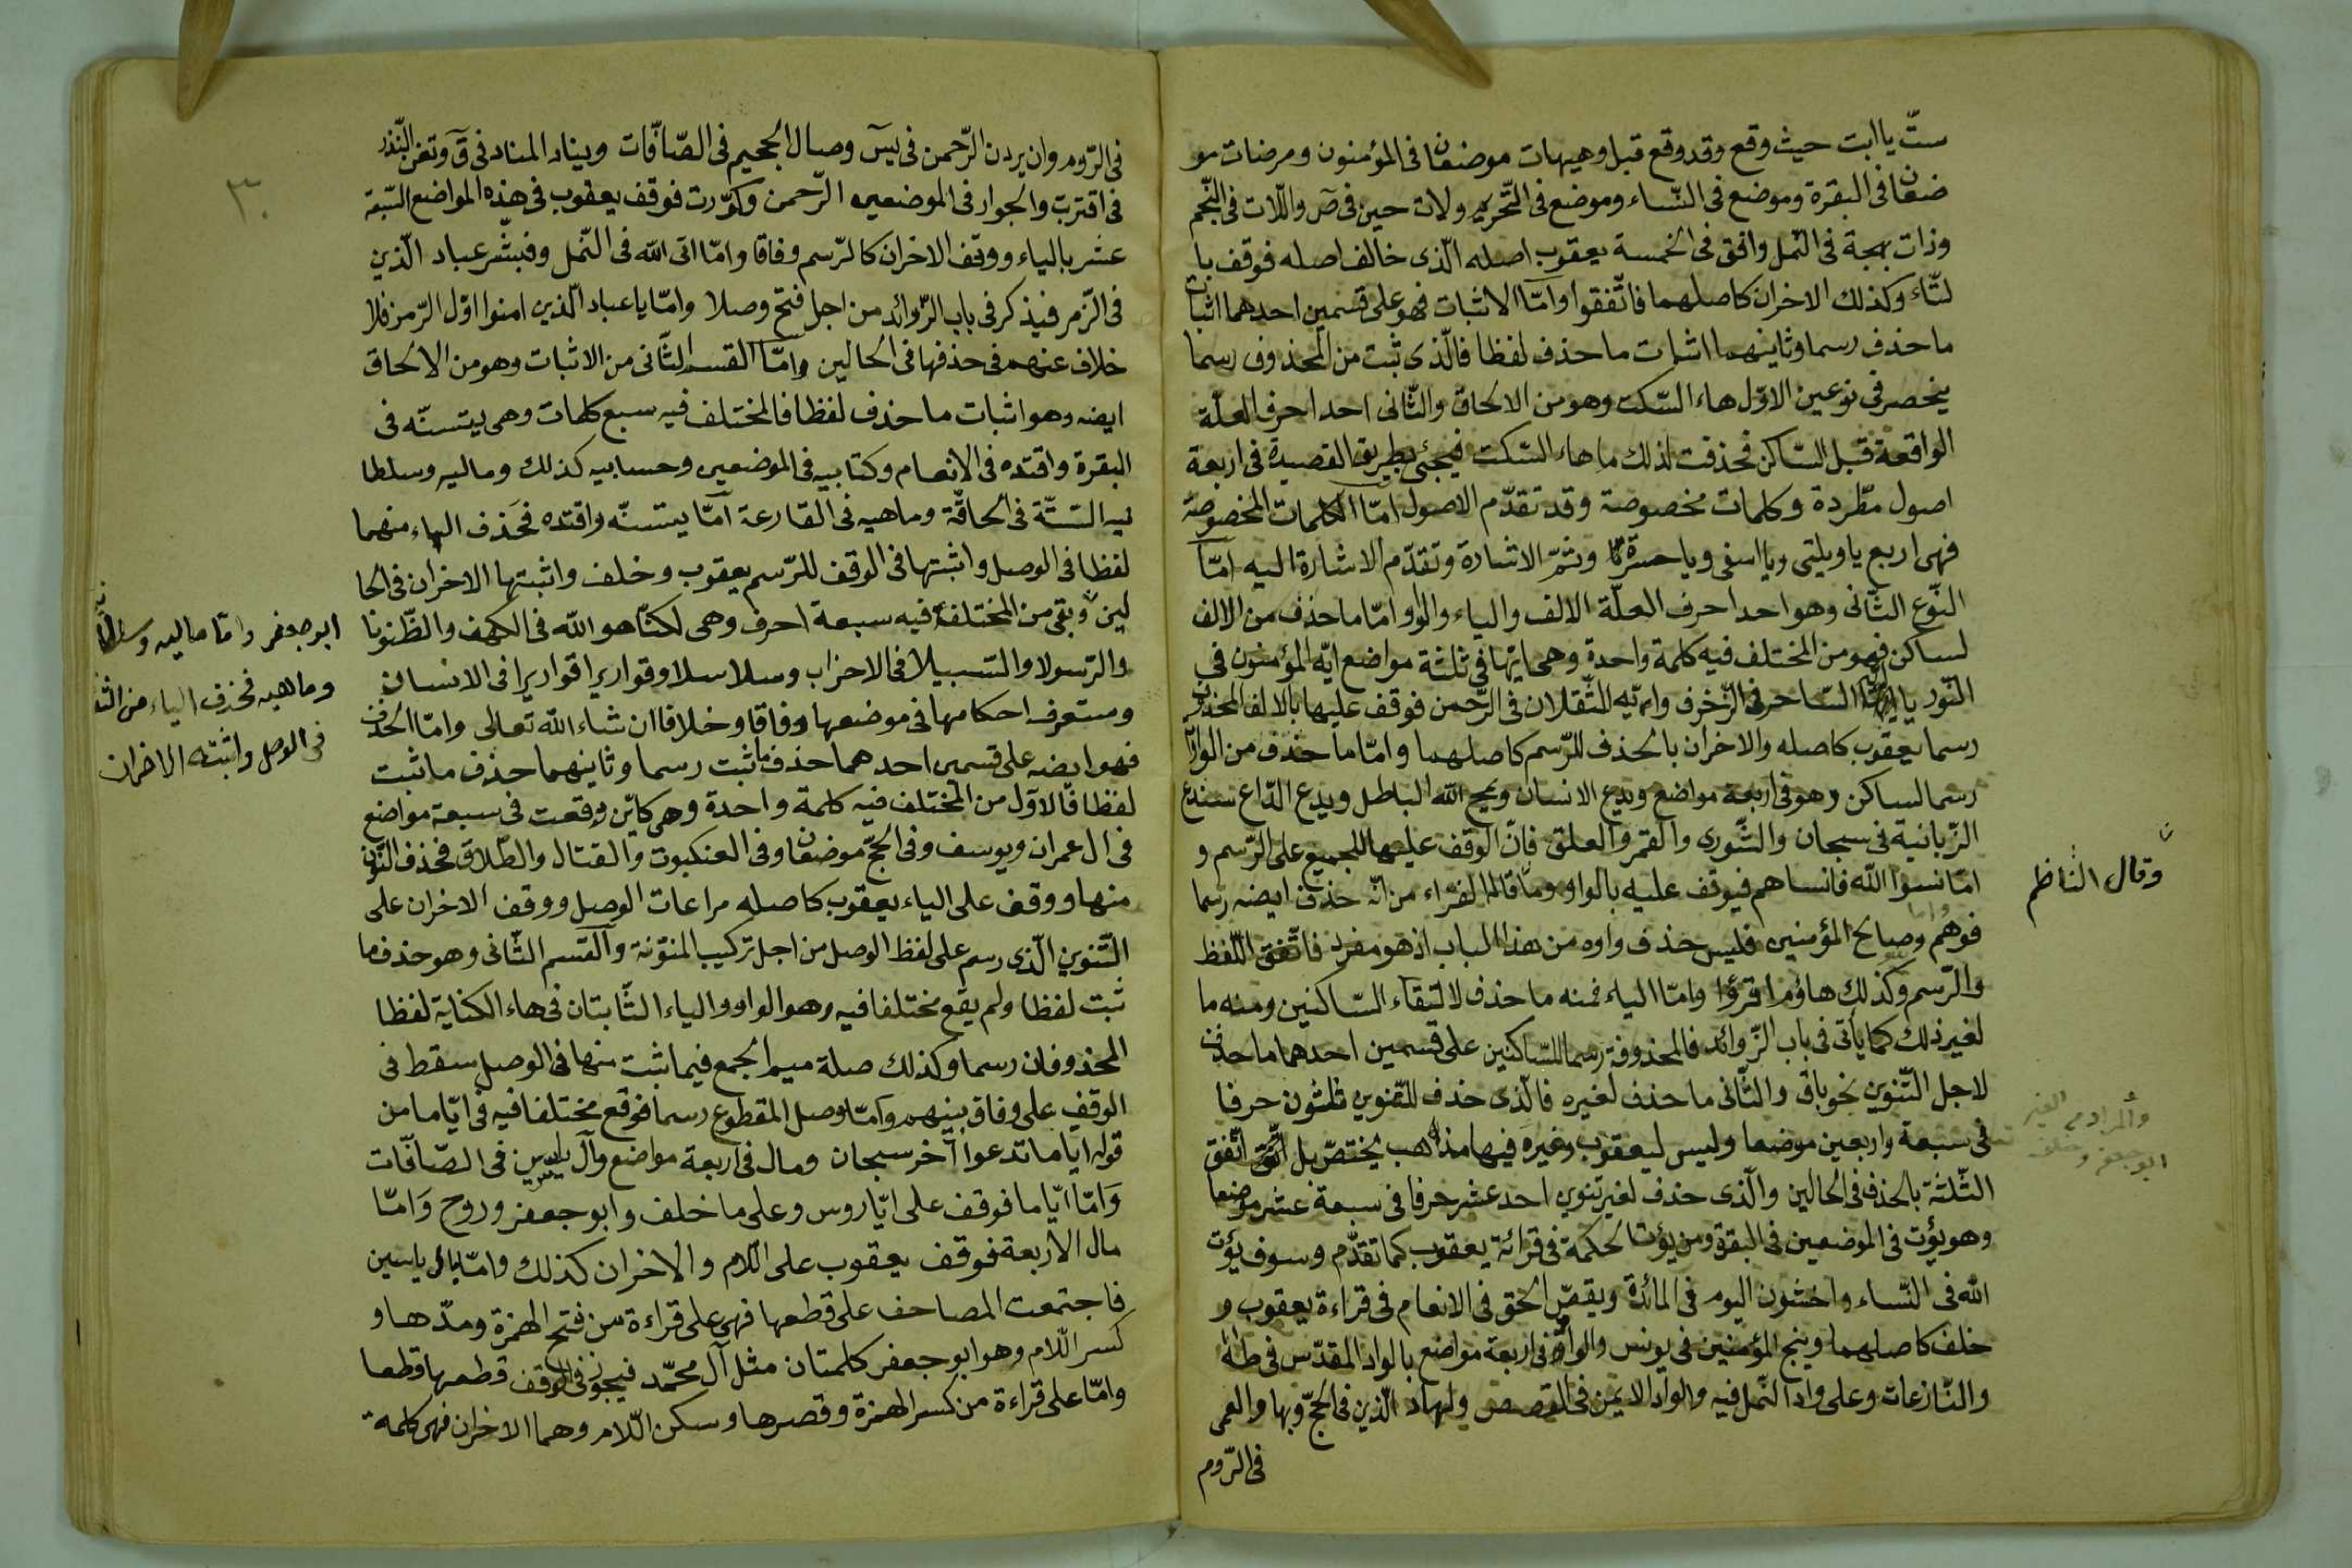 ستّ يا ابت حيث وقع وقد وقع قبل وهيهات موضعان فى المؤمنون ومرضات مو
ضعان فى البقرة وموضع فى النّساء وموضع فى التّحريم ولات حين فى ص واللّات فى النّجم
وذات بهجة فى النّمل وافق فى الخمسة يعقوب اصله الّذى خالف اصله فوقف با
لتّاء وكذلك الاخران كاصلهما فاتّفقوا وامّا الاثبات فهو على قسمين احدهما اثبات
ما حذف رسما وثانيهما اثبات ما حذف لفظا فالّذى ثبت من المحذوف رسما
ينحصر فى نوعين الاوّل هاء السّكت وهو من الالحاق والثّانى احد احرف العلّة
الواقعة قبل السّاكن فحذفت لذلك ما هاء السّكت فيجئ بطريق القصيدة فى اربعة
اصول مطّردة وكلمات مخصوصة وقد تقدّم الاصول امّا الكلمات المخصوصة
فهى اربع يا ويلتى ويا اسفى ويا حسرتا وثمّ الاشارة وتقدّم الاشارة اليه امّا
النّوع الثّانى وهو احد احرف العلّة الالف والياء والواو امّا ما حذف من الالف
لساكن فهو من المختلف فيه كلمة واحدة وهى ايّها فى ثلثة مواضع ايّه المؤمنون فى
النّور يا ايّه السّاحر فى الزّخرف وايّه الثّقلان فى الرّحمن فوقف عليها بالالف المحذوف
رسما يعقوب كاصله والاخران بالحذف للرّسم كاصلهما وامّا ما حذف من الواو
رسما لساكن وهو فى اربعة مواضع ويدع الانسان ويمح الله الباطل ويدع الدّاع سندع
الزّبانية فى سبحان والشّورى والقمر والعلق فانّ الوقف عليها للجميع على الرّسم و
امّا نسوا الله فانساهم فيوقف عليه بالواو وما قاله الفرّاء من انّه حذف ايضه رسما
فوهم وامّا وصالح المؤمنين فليس حذف واوه من هذا الباب اذ هو مفرد فاتّفق اللّفظ
والرّسم وكذلك هاؤم اقرؤا وامّا الياء فمنه ما حذف لالتقاء السّاكنين ومنه ما
لغير ذلك كما يأتى فى باب الزّوائد فالمحذوفة رسما للسّاكنين على قسمين احدهما ما حذف
لاجل التّنوين نحو باق والثّانى ما حذف لغيره فالّذى حذف للتّنوين ثلثون حرفا
فى سبعة واربعين موضعا وليس ليعقوب وغيره فيها مذهب يختصّ بل اتّفق
الثّلثة بالحذف فى الحالين والّذى حذف لغير تنوين احد عشر حرفا فى سبعة عشر موضعا
وهو يؤت فى الموضعين فى البقرة ومن يؤت الحكمة فى قرائة يعقوب كما تقدّم وسوف يؤت
الله فى النّساء واخشون اليوم فى المائدة ويقصّ الحق فى الانعام فى قراءة يعقوب و
خلف كاصلهما وينج المؤمنين فى يونس والواد فى اربعة مواضع بالواد المقدّس فى طه
والنّازعات وعلى واد النّمل فيه والواد الايمن فى القصص ولهاد الّذين فى الحجّ وبهاد العمى
فى الرّوم
وقال النّاظم
والمراد من الغير
ابو جعفر وخلف
٣٠
فى الرّوم وان يردن الرّحمن فى يس وصال الجحيم فى الصّافّات ويناد المناد فى ق وتغن النّذر
فى اقتربت والجوار فى الموضعين الرّحمن وكوّرت فوقف يعقوب فى هذه المواضع السّبعة
عشر بالياء ووقف الاخران كالرّسم وفاقا وامّا اتى الله فى النّمل وفبشّر عباد الّذين
فى الزّمر فيذكر فى باب الزّوائد من اجل فتح وصلا وامّا يا عباد الّذين امنوا اوّل الزّمر فلا
خلاف عنهم فى حذفها فى الحالين وامّا القسم الثّانى من الاثبات وهو من الالحاق
ايضه وهو اثبات ما حذف لفظا فالمختلف فيه سبع كلمات وهى يتسنّه فى
البقرة واقتده فى الانعام وكتابيه فى الموضعين وحسابيه كذلك وماليه وسلطا
نيه السّتّة فى الحاقّة وماهيه فى القارعة امّا يتسنّه واقتده فحذف الهاء منهما
لفظا فى الوصل واثبتها فى الوقف للرّسم يعقوب وخلف واثبتها الاخران فى الحا
لين وبقى من المختلفة فيه سبعة احرف وهى لكنّا هو الله فى الكهف والظّنونا
والرّسولا والسّبيلا فى الاحزاب وسلاسلا وقواريرا قواريرا فى الانسان
وستعرف احكامها فى موضعها وفاقا وخلافا ان شاء الله تعالى وامّا الحذف
فهو ايضه على قسمين احدهما حذف ما ثبت رسما وثانيهما حذف ما ثبت
لفظا فالاوّل من المختلف فيه كلمة واحدة وهى كايّن وقعت فى سبعة مواضع
فى ال عمران ويوسف وفى الحجّ موضعان وفى العنكبوت والقتال والطّلاق فحذف النّون
منها ووقف على الياء يعقوب كاصله مراعات الوصل ووقف الاخران على
التّنوين الّذى رسم على لفظ الوصل من اجل تركيب المنوّنة والقسم الثّانى وهو حذف ما
ثبت لفظا ولم يقع مختلفا فيه وهو الواو والياء الثّابتان فى هاء الكناية لفظا
المحذوفان رسما وكذلك صلة ميم الجمع فيما ثبت منها فى الوصل سقط فى
الوقف على وفاق بينهم وامّا وصل المقطوع رسما فوقع مختلفا فيه فى ايّاما من
قوله اياما تدعوا آخر سبحان ومال فى اربعة مواضع وآل ياسين فى الصّافّات
وامّا ايّاما فوقف على ايّا روس وعلى ما خلف وابو جعفر وروح وامّا
مال الاربعة فوقف يعقوب على اللّام والاخران كذلك وامّا ال ياسين
فاجتمعت المصاحف على قطعها فهى على قراءة من فتح الهمزة ومدّها و
كسر اللّام وهو ابو جعفر كلمتان مثل آل محمّد فيجوز فى الوقف قطعها قطعا
وامّا على قراءة من كسر الهمزة وقصرها وسكن اللّام وهما الاخران فهى كلمة
ابو جعفر وامّا ماليه وسلطانيه
وماهيه فحذف الهاء من الثّلثة
فى الوصل واثبته الاخران